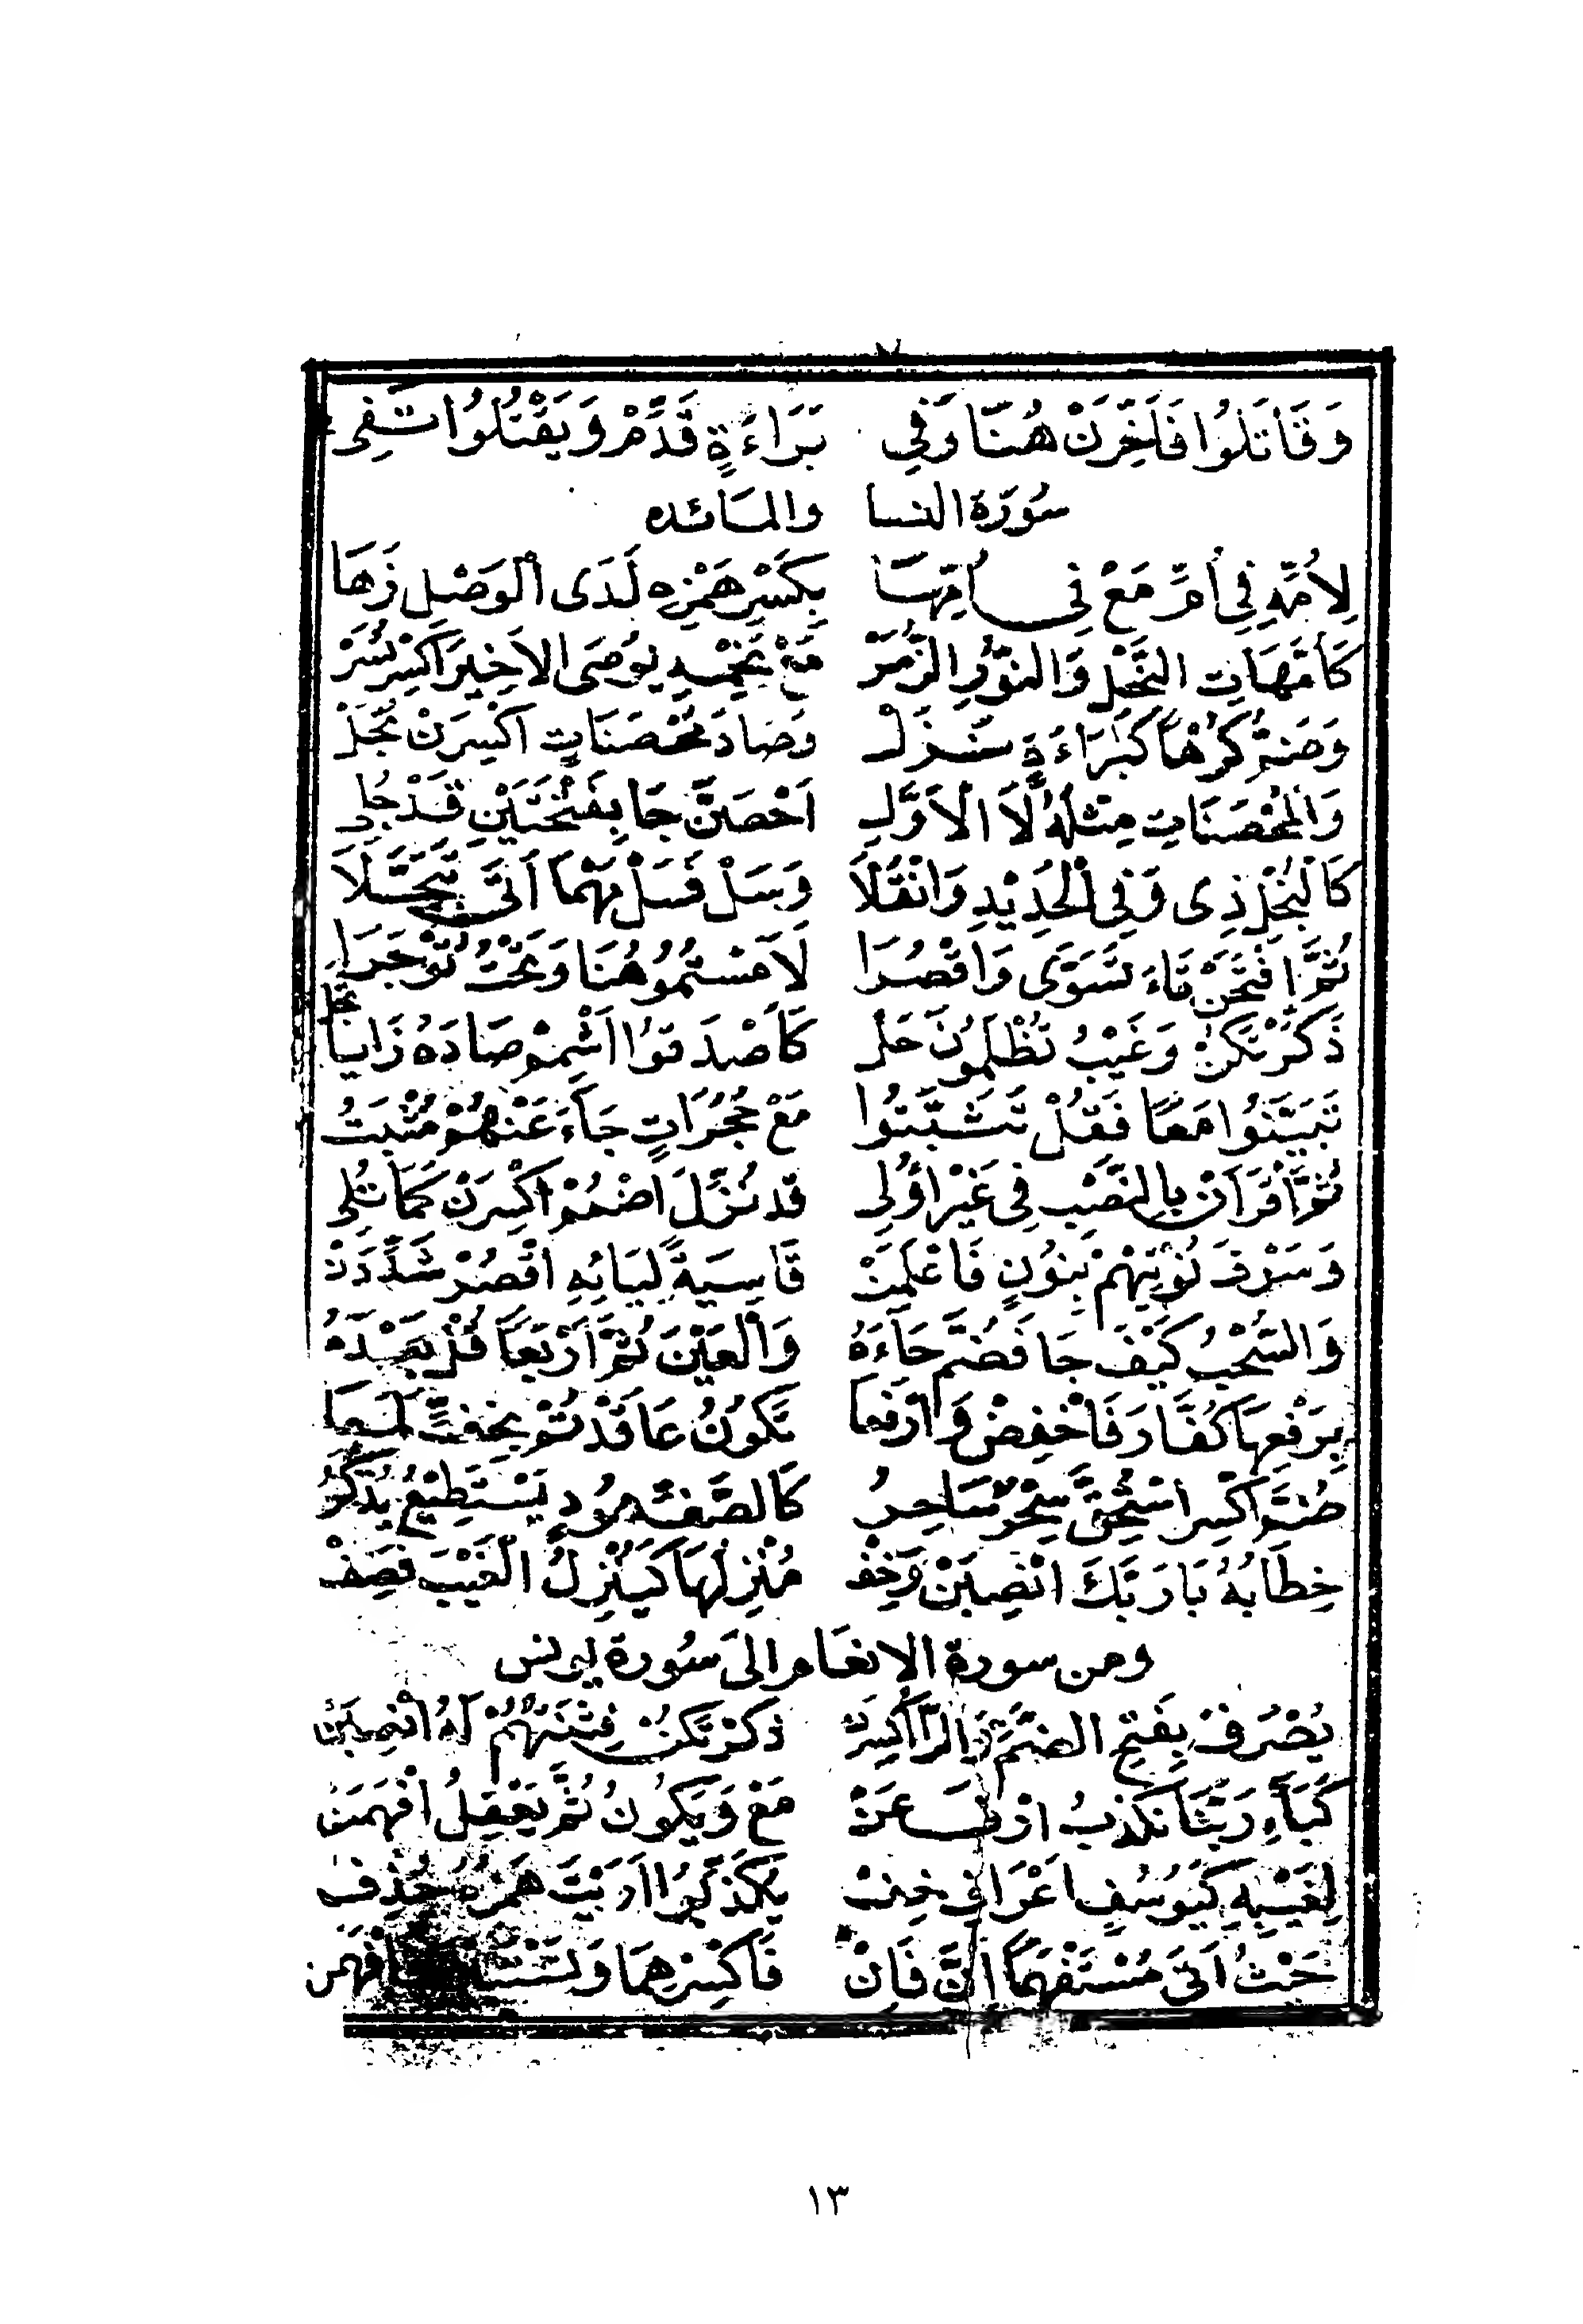 وَقَاتَلُوا فَأَخِّرَنْ هُنَا وَفِي بَرَاءَةٍ قَدِّمْ وَيَقْتُلُوا تَفِي
سُورَة النسا والمائده
لِأُمِّهِ فِي أُمِّ مَعْ فِي أُمِّهَا بِكَسْرِ هَمْزِهِ لَدَى الْوَصْلِ زَهَا
كَأُمَّهَاتِ النَّحْلِ وَالنُّورِ الزُّمَرْ مَعْ نَجْمِهِ يُوصَى الأَخِيرَ اكْسِرْ تُسَرْ
وَضَمُّ كُرْهًا كَبَرَاءَةٍ نَزَلْ وَصَادَ مُحْصَنَاتٍ اكْسِرَنْ تُجَلْ
وَالْمُحْصَنَاتِ مِثْلُهُ لَا الْأَوَّلِ أَحْصَنَّ جَا بِفَتْحَتَيْنِ قَدْ جُلِي
كَالْبُخْلِ ذِى وَفِي الْحَدِيْدِ وَانْقُلَا وَسَلْ فَسَلْ مَهْمَا أَتَى تَبَجَّلَا
ثُمَّ افْتَحَنْ تَاءَ تَسَوَّى وَاقْصُرَا لَامَسْتُمُو هُنَا وَتَحْتُ تُوْجَرَا
ذَكِّرْ تَكُنْ وَغَيْبُ تُظْلَمُونَ حَلْ كَأَصْدَقُوا أَشْمِمْ صَادَهُ زَايًا
تَبَيَّنُوا مَعًا فَقُلْ تَثَبَّتُوا مَعْ حُجُرَاتٍ جَاءَ عَنْهُمْ مُثْبَتُ
ثُمَّ اقْرَأَنْ بِالنَّصْبِ فِي غَيْرُ أُولِي قد نُزِّلَ اضْمُمْ اكْسِرَنْ كَمَا تُلِي
وَسَوْفَ نُؤْتِيْهِمْ بِنُونٍ فَاعْلَمَنْ قَاسِيَةً لِيَائِهِ اقْصُرْ شَدِّدَنْ
وَالسُّحْتُ كَيْفَ جَا فَضُمَّ حَاءَهُ وَالْعَيْنَ ثُمَّ أَرْبَعًا قُلْ بَعْدَهُ
بِرَفْعِهَا كُفَّارَ فَاخْفِضْ وَارْفَعَا تَكُونُ عَاقَدْتُمْ بِخِفٍّ لَمَعَا
ضُمَّ اكْسِرِ اسْتُحِقَّ سِحْرٌ سَاحِرُ كَالصَّفِّ هُودٍ يَسْتَطِيْعُ يُذْكَرُ
خِطَابُهُ بَا رَبَّكَ انْصِبَنْ وَخِفْ مُنْزِلُهَا كَيُنْزِلُ الْغَيْبَ تَصِفْ
ومن سورة الانعام الى سُورة يونس
يُصْرَفْ بِفَتْحِ الضَّمِّ وَالرَّا اكْسِرَنْ ذَكِّرْ تَكُنْ فِتْنَتُهُمْ لَهُ انْصِبَنْ
كَبَاءِ رَبَّنَا نُكَذِّبُ ارْفَعَنْ مَعْ وَيَكُونُ ثُمَّ يَعْقِلُ افْهَمَنْ
لِغَيْبِهِ كَيُوسُفٍ أَعْرَافِ يُكَذِّبُوا أَرَيْتَ هَمْزُهُ حُذِفْ
حَيْثُ أَتَى مُسْتَفْهِمًا إِنَّ فَإِنْ فَاكْسِرْهُمَا افْهَمَن
١٣